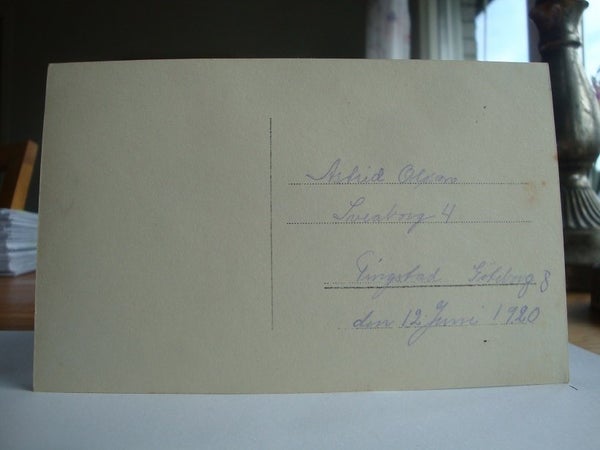 Astrid Olsson
Sveaborg 4
Tingstad Göteborg 8
den 12 Juni 1920